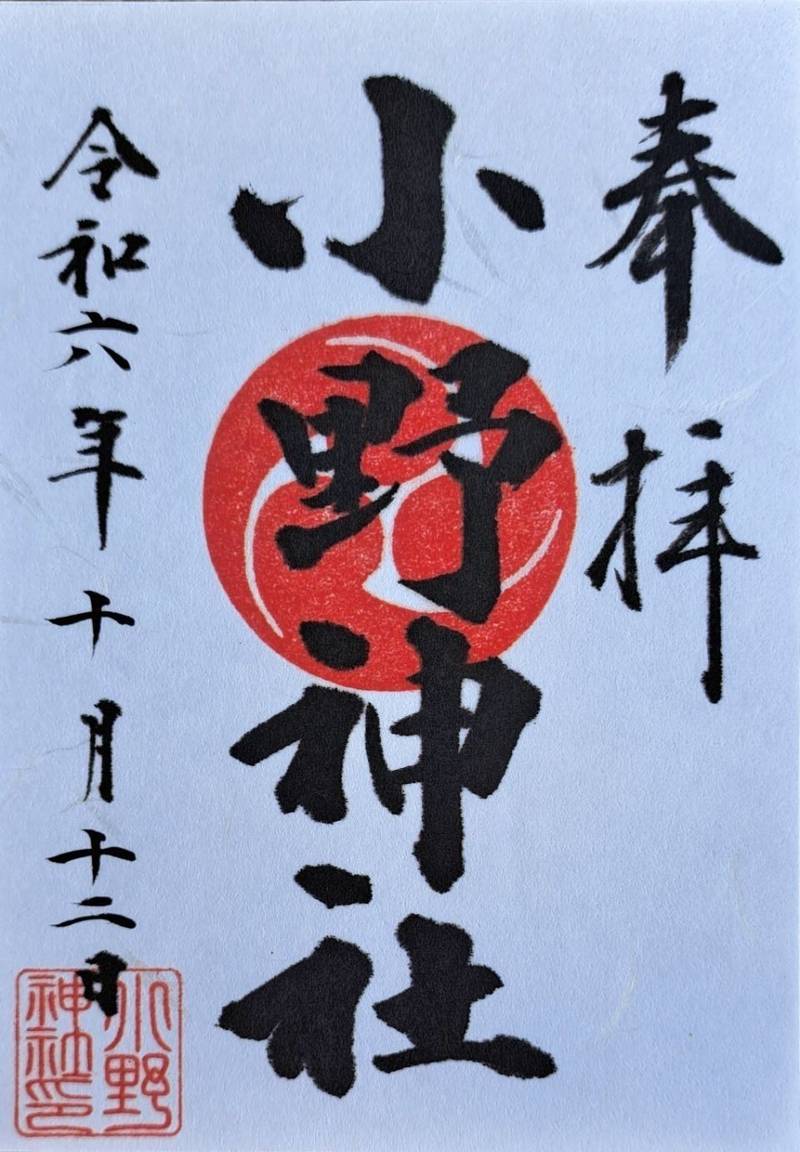 奉拝
小野神社
令和六年十月十二日
小野
神社印